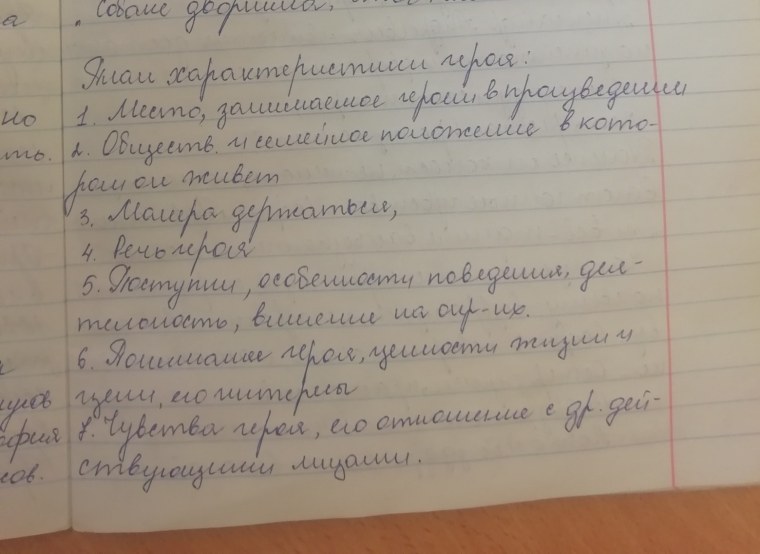 а
. собаке дворняга,
План характеристики героя:
но
1. Место, занимаемое героем в произведении
ть.
2. Обществ. и семейное положение в кото-
ром он живет
3. Манера держаться,
4. Речь героя
5. Поступки, особенности поведения, дея-
тельность, влияние на окр-их.
6. Понимание героя, ценности жизни и
цели, его интересы
7. Чувства героя, его отношение с др. дей-
ков.
ствующими лицами.